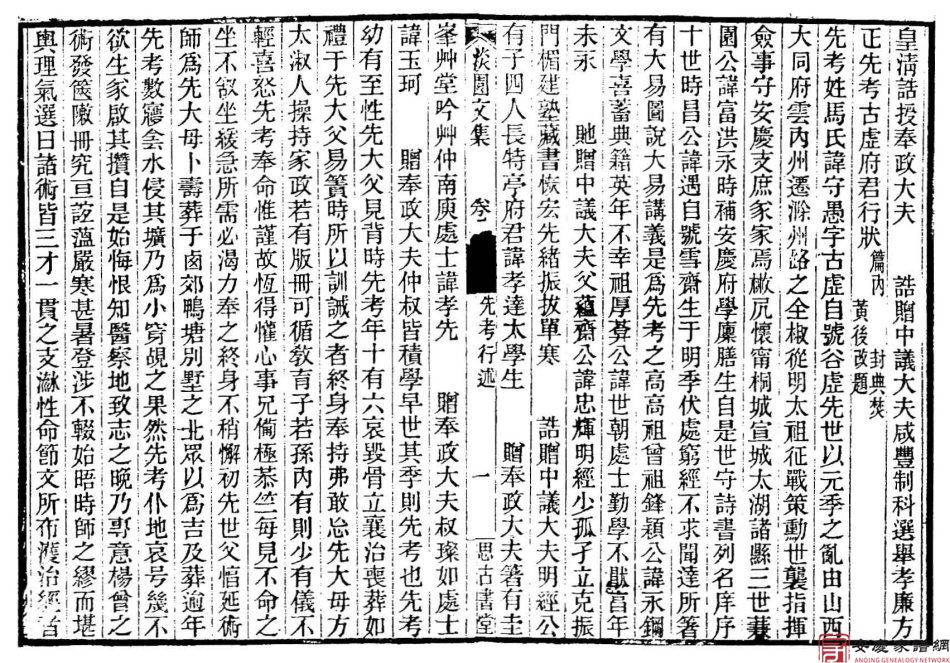 皇淸誥授奉政大夫 誥贈中議大夫咸豐制科選舉孝廉方
正先考古虛府君行狀 篇內 封典焚黃後改題
先考姓馬氏諱守愚字古虛自號谷虛先世以元季之亂由山西
大同府雲內州遷滁州路之全椒從明太祖征戰策勳世襲指揮
僉事守安慶支庶家家焉橄尻懷甯桐城宣城太湖諸縣三世
園公諱富洪永時補安慶府學廩膳生自是世守詩書列名庠序
十世時昌公諱遇自號雪齋生于明季伏處窮經不求聞達所箸
有大易圖說大易講義是爲先考之高高祖曾祖鋒穎公諱永鋼
文學喜蓄典籍英年不幸祖厚葊公諱世朝處士勤學不猒富年
未永 貤贈中議大夫父蘊齋公諱忠輝明經少孤孑立克振
門楣建塾藏書恢宏先緒振拔單寒 誥贈中議大夫明經公
有子四人長特亭府君諱孝達太學生 贈奉政大夫箸有圭
淡園文集 卷二 先考行述 一 思古書堂
峯艸堂吟艸仲南庚處士諱孝先 贈奉政大夫叔璨如處士
諱玉珂 贈奉政大夫仲叔皆積學早世其季則先考也先考
幼有至性先大父見背時先考年十有六哀毀骨立襄治喪葬如
禮于先大父易簀時所以訓誡之者終身奉持弗敢忘先大母方
太淑人操持家政若有版冊可循敎育子若孫內有則少有儀不
輕喜怒先考奉命惟謹故恆得懽心事兄僃極恭竺每見不命之
坐不敢坐緩急所需必渴力奉之終身不稍懈初先世父倌延術
師爲先大母卜壽葬于鹵郊鴨塘別墅之北眾以爲吉及葬逾年
先考數寱會水侵其壙乃爲小穿覘之果然先考仆地哀号幾不
欲生家啟其攢自是始悔恨知醫察地致志之晚乃專意楊曾之
術發篋隞冊究亘訖薀嚴寒甚暑登涉不輟始晤時師之繆而堪
輿理氣選日諸術皆三才一貫之支㳅性命節文所布濩治經者
安慶家譜網
ANQING GENEALOGY NETWORK